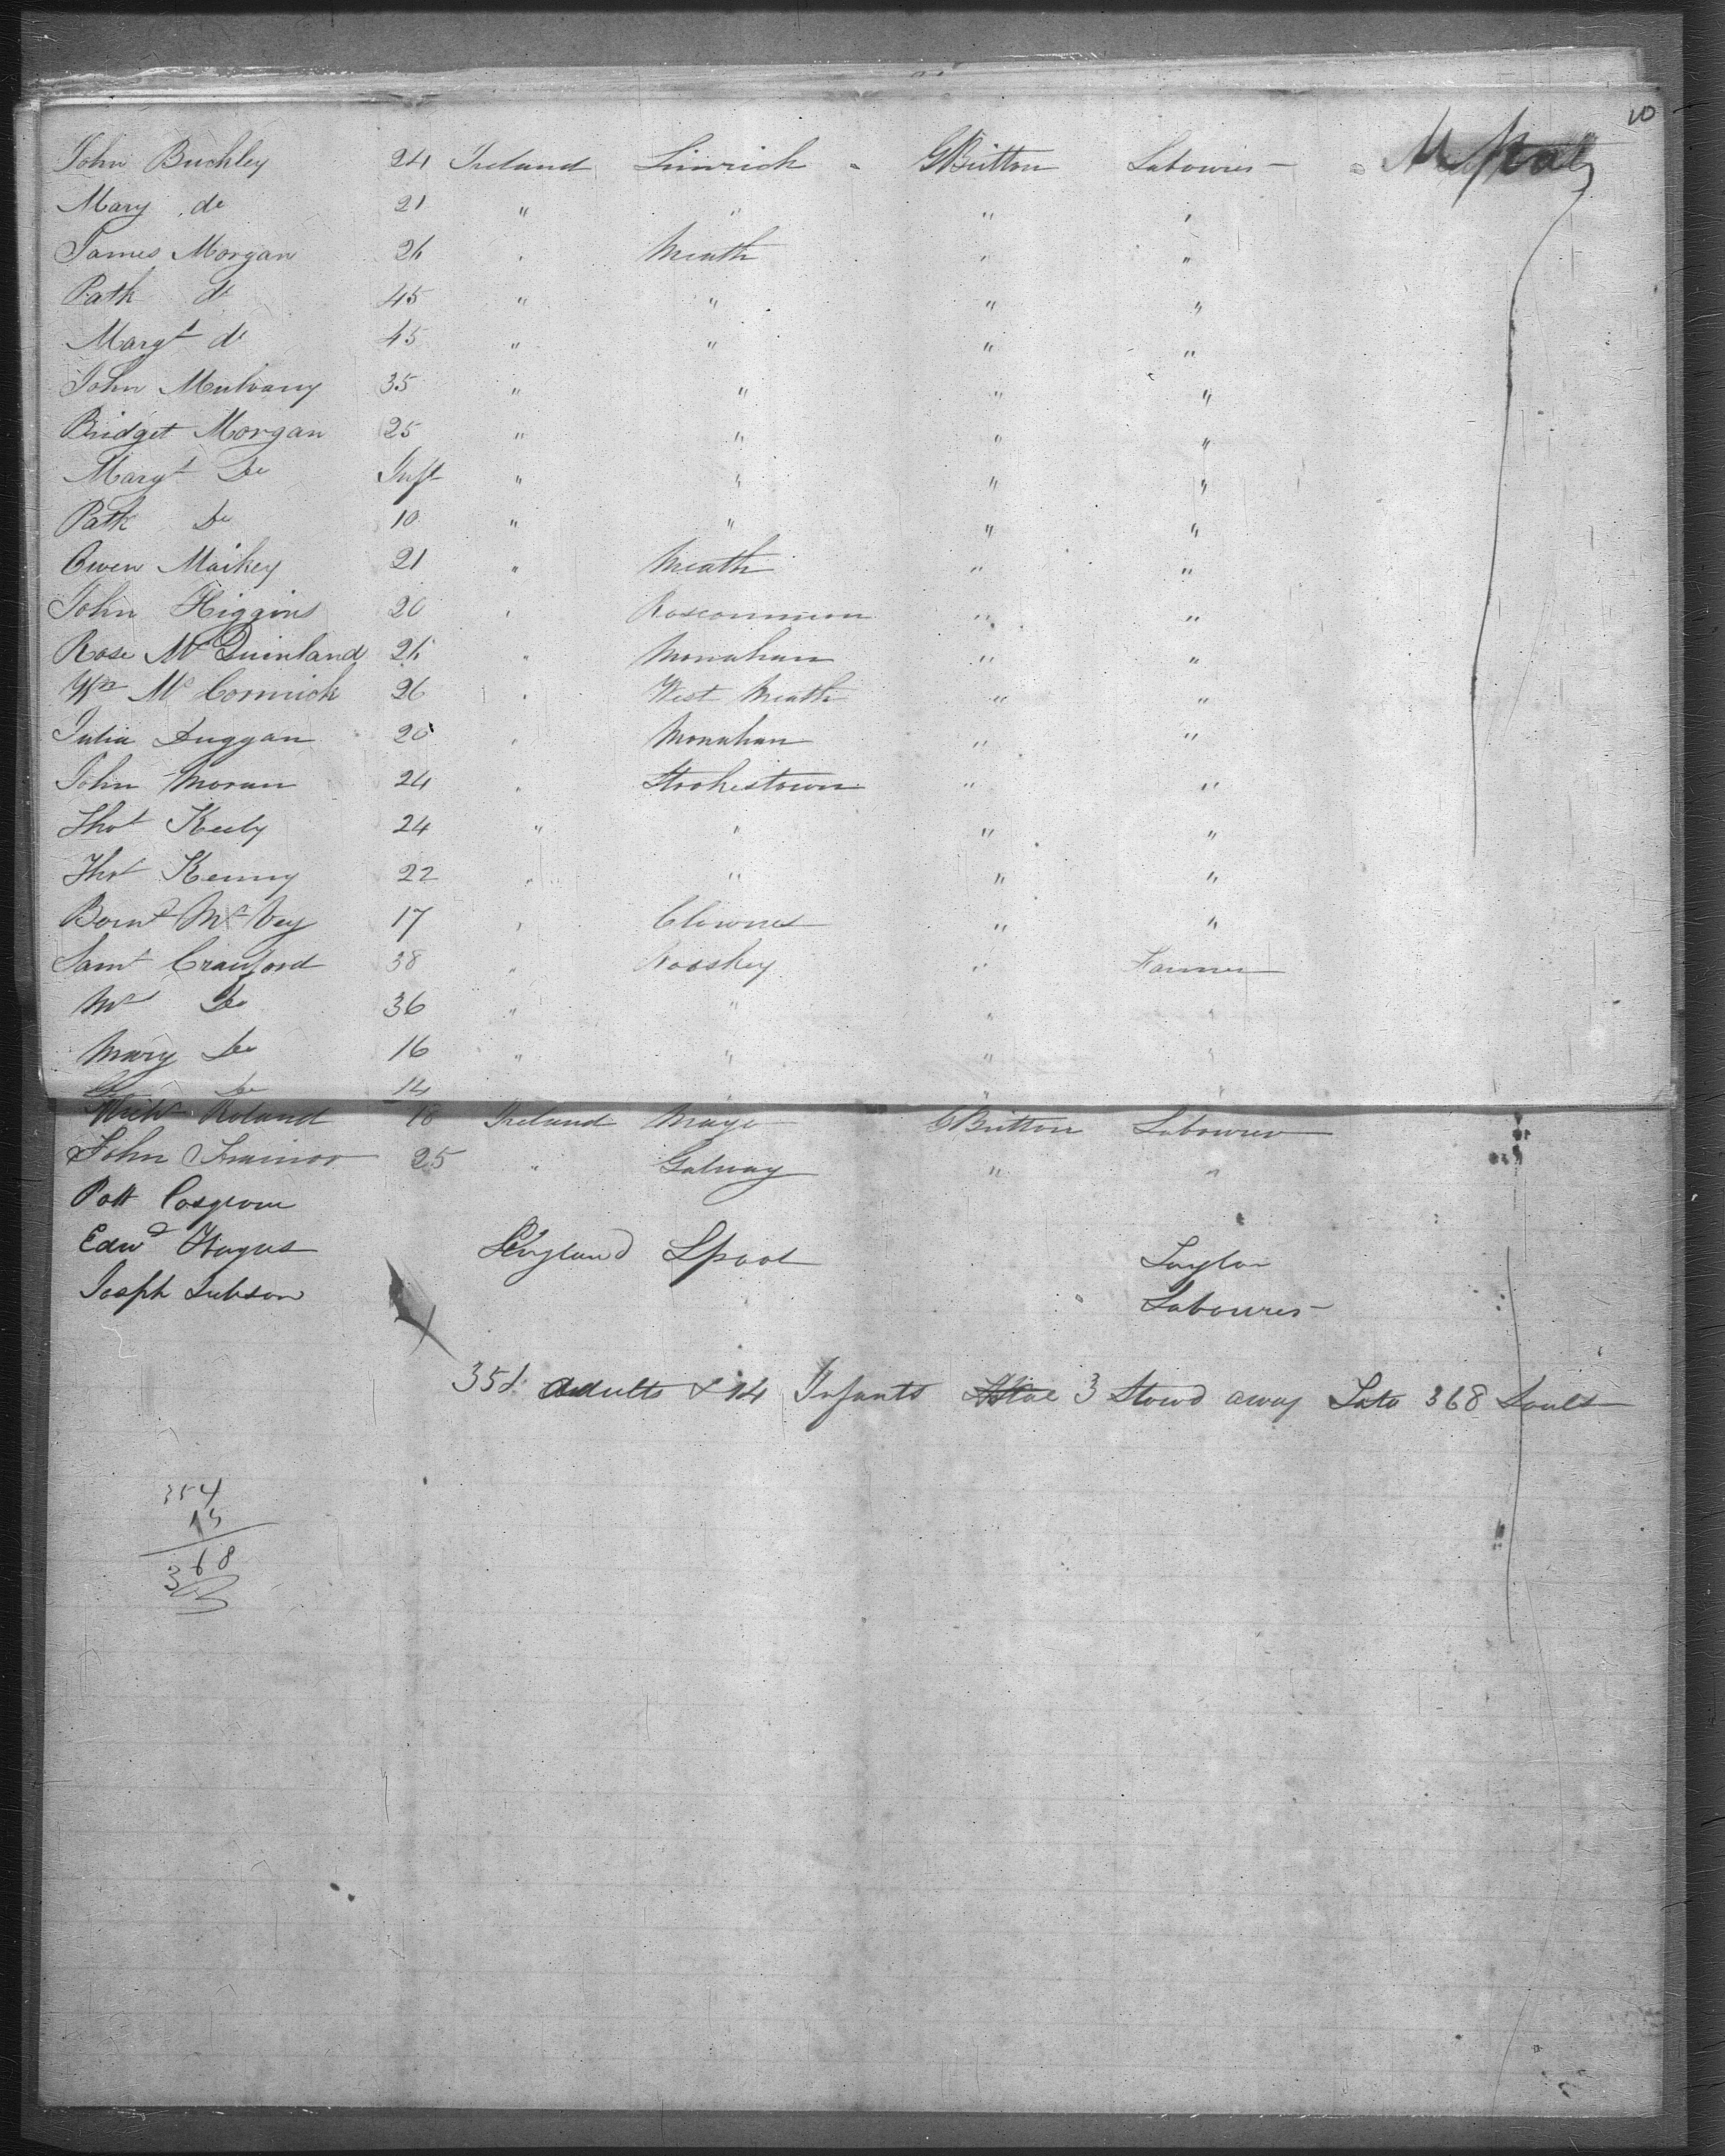 10
John Buckley 24 Ireland Limrick " GBritton Labourer " M
Mary do 21 " " " "
James Morgan 26 " Meath " "
Patk do 45 " " " "
Margt do 45 " " " "
John Mulvany 35 " " " "
Bridget Morgan 25 " " " "
Margt Do Inft " " " "
Patk Do 10 " " " "
Owen Maikey 21 " Meath " "
John Higgins 20 " Roscommon " "
Rose Mc Quinland 26 " Monahan " "
Wm Mc Cormick 26 " West Meath " "
Julia Duggan 20 " Monahan " "
John Moran 24 " Strokestown " "
Thos Keely 24 " " " "
Thos Kenny 22 " " " "
Bernd Mc Vey 17 " Clownes " "
Saml Crauford 38 " Rooskey " Farmer
Mrs Do 36 " " " "
Mary Do 16 " " " "
Do 14 " "
Michl Roland 18 Ireland Mayo GBritton Labourer
John Trainor 25 " Galway " "
Patt Cosgrove
Edwd Hagus England Lpool Taylor
Joseph Labourer
351 adults & 14 Infants 3 Stowd away Tota 368 Souls
354
15
368